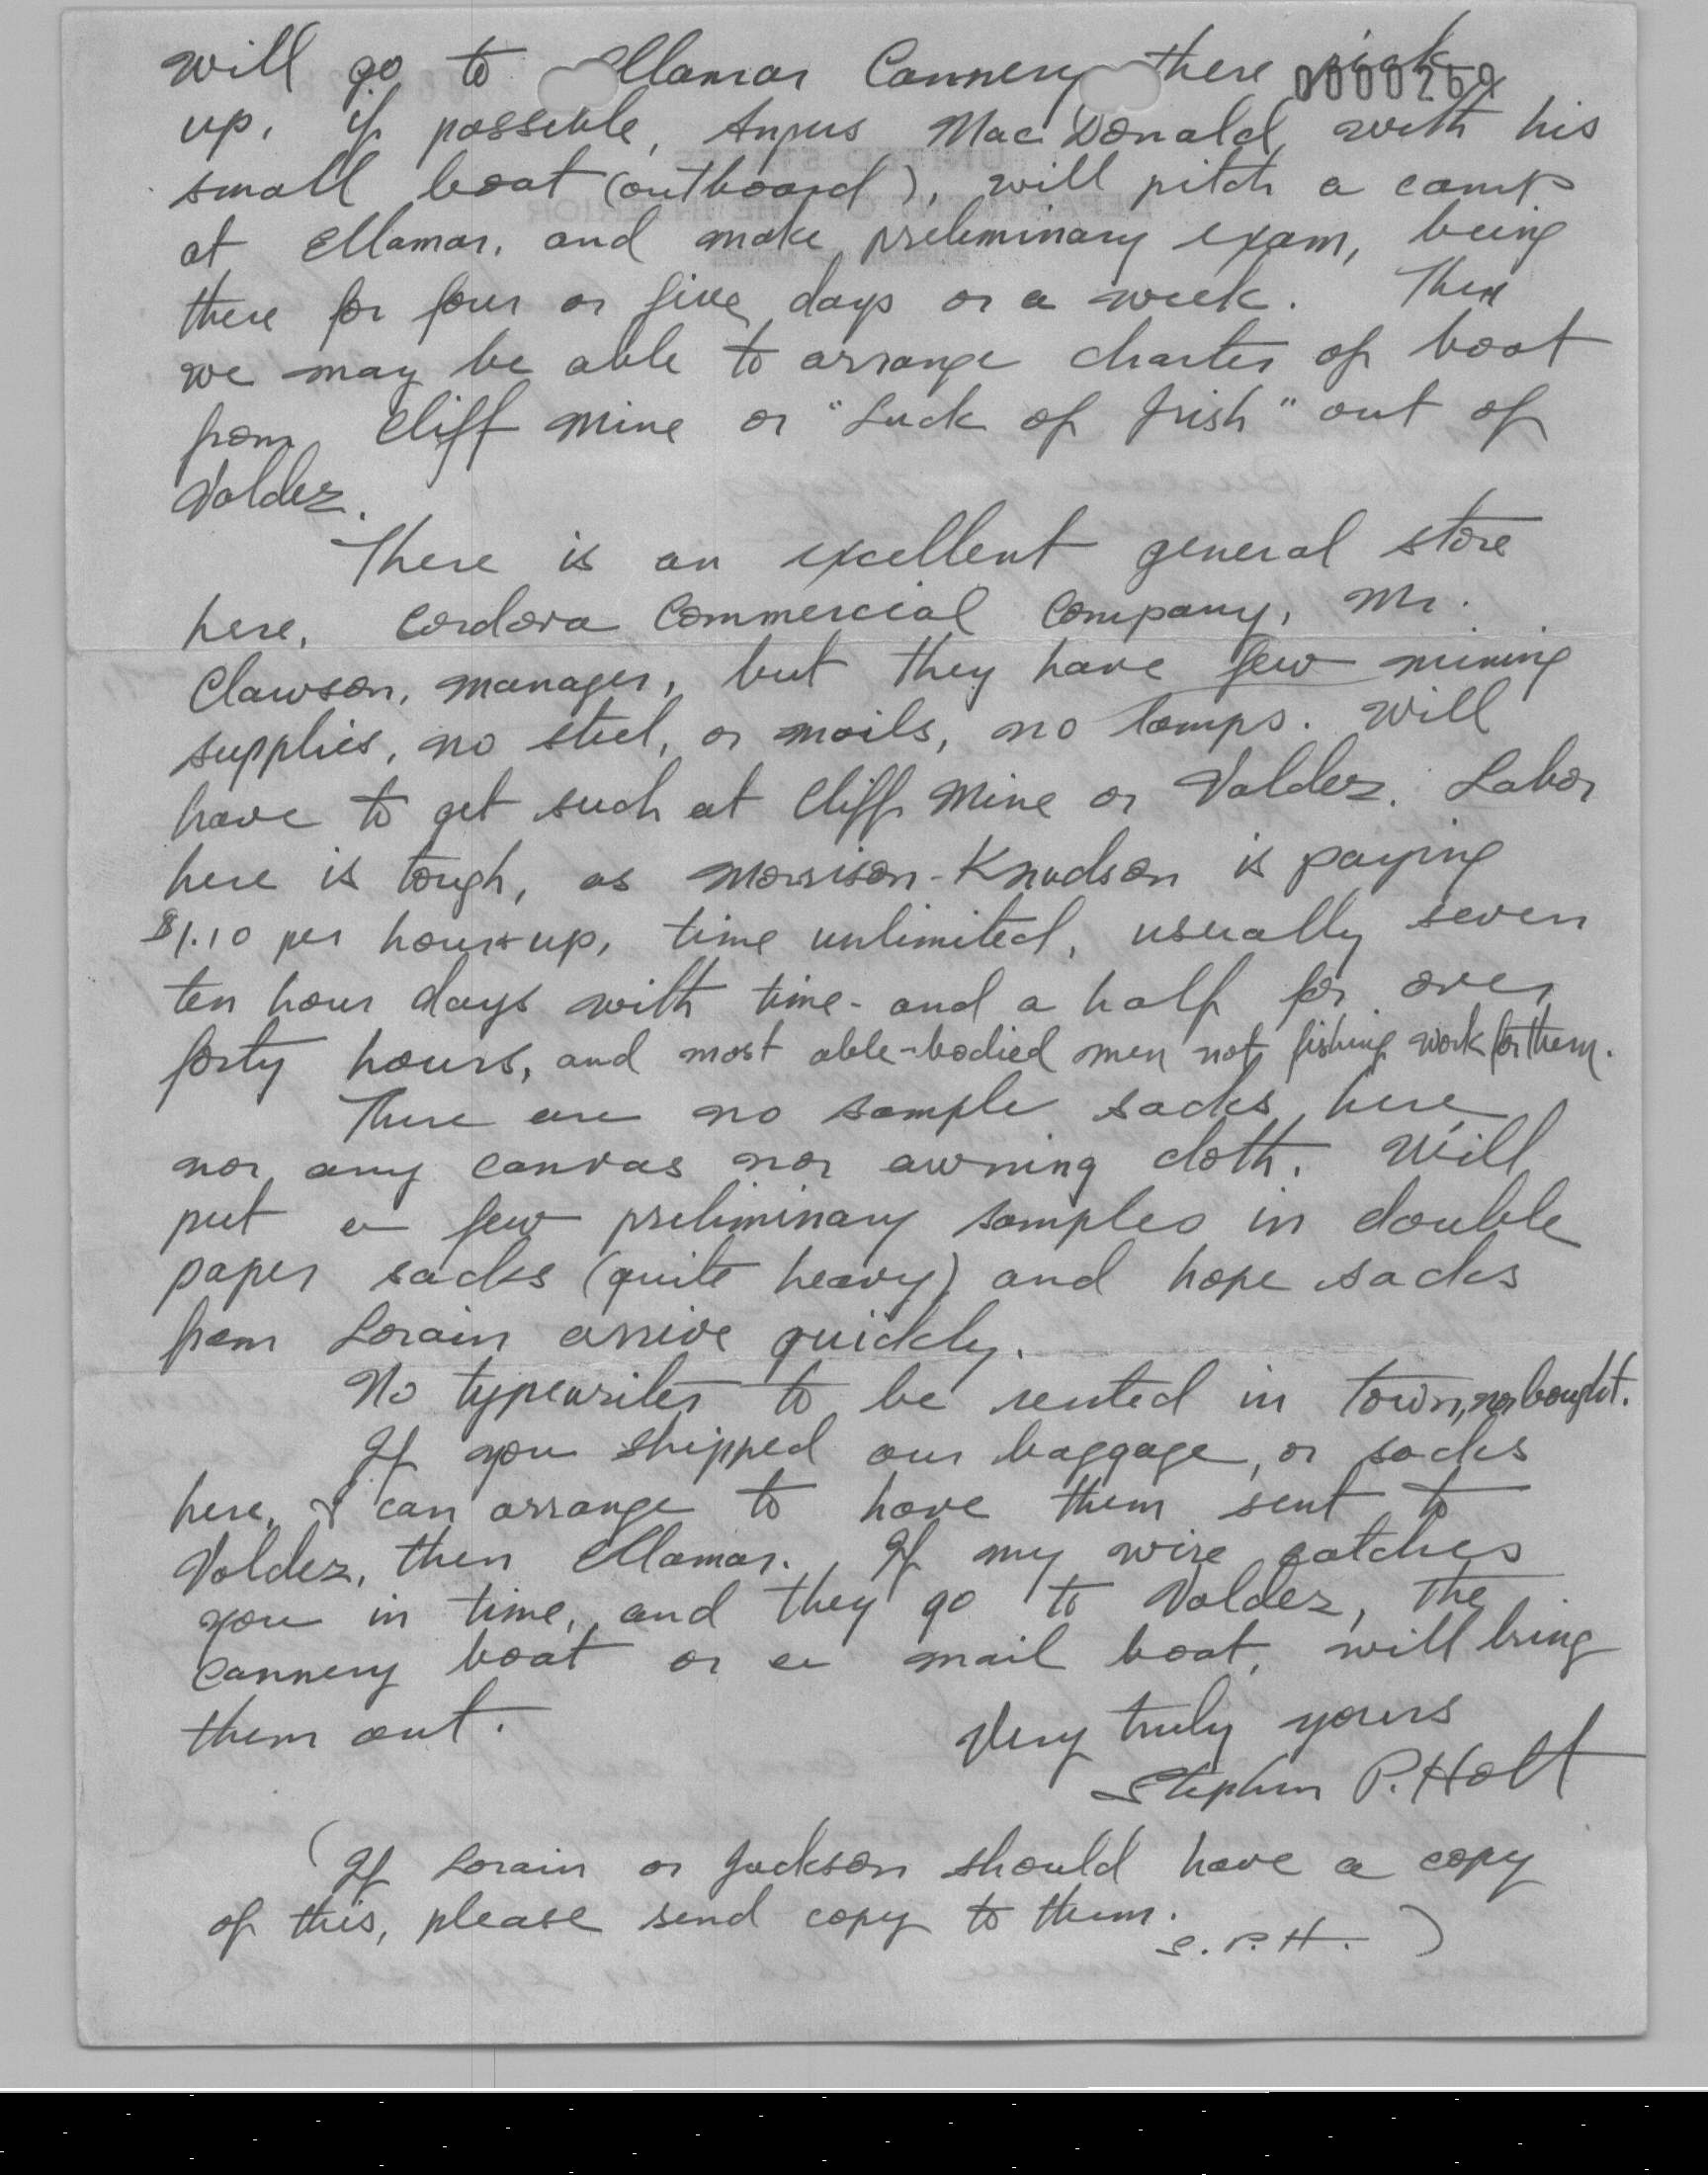 will go to Ellamar Cannery there pick
0000269
up, if possible, Angus MacDonald with his
small boat (outboard), will pitch a camp
at Ellamar, and make preliminary exam, being
there for four or five days or a week. Then
we may be able to arrange charter of boat
from Cliff Mine or "Luck of Irish" out of
Valdez.
There is an excellent general store
here, Cordova Commercial Company, Mr.
Clawson, manager, but they have few mining
supplies, no steel, or moils, no lamps. Will
have to get such at Cliff Mine or Valdez. Labor
here is tough, as Morrison-Knudson is paying
$1.10 per hour + up, time unlimited, usually seven
ten hour days with time-and a half for over
forty hours, and most able-bodied men not fishing work for them.
There are no sample sacks here,
nor any canvas nor awning cloth. Will
put a few preliminary samples in double
paper sacks (quite heavy) and hope sacks
from Lorain arrive quickly.
No typewriter to be rented in town, nor bought.
If you shipped our baggage, or sacks
here, I can arrange to have them sent to
Valdez, then Ellamar. If my wire catches
you in time, and they go to Valdez, the
cannery boat or a mail boat, will bring
them out.
Very truly yours
Stephen P. Holt
(If Lorain or Jackson should have a copy
of this, please send copy to them.
S.P.H. )